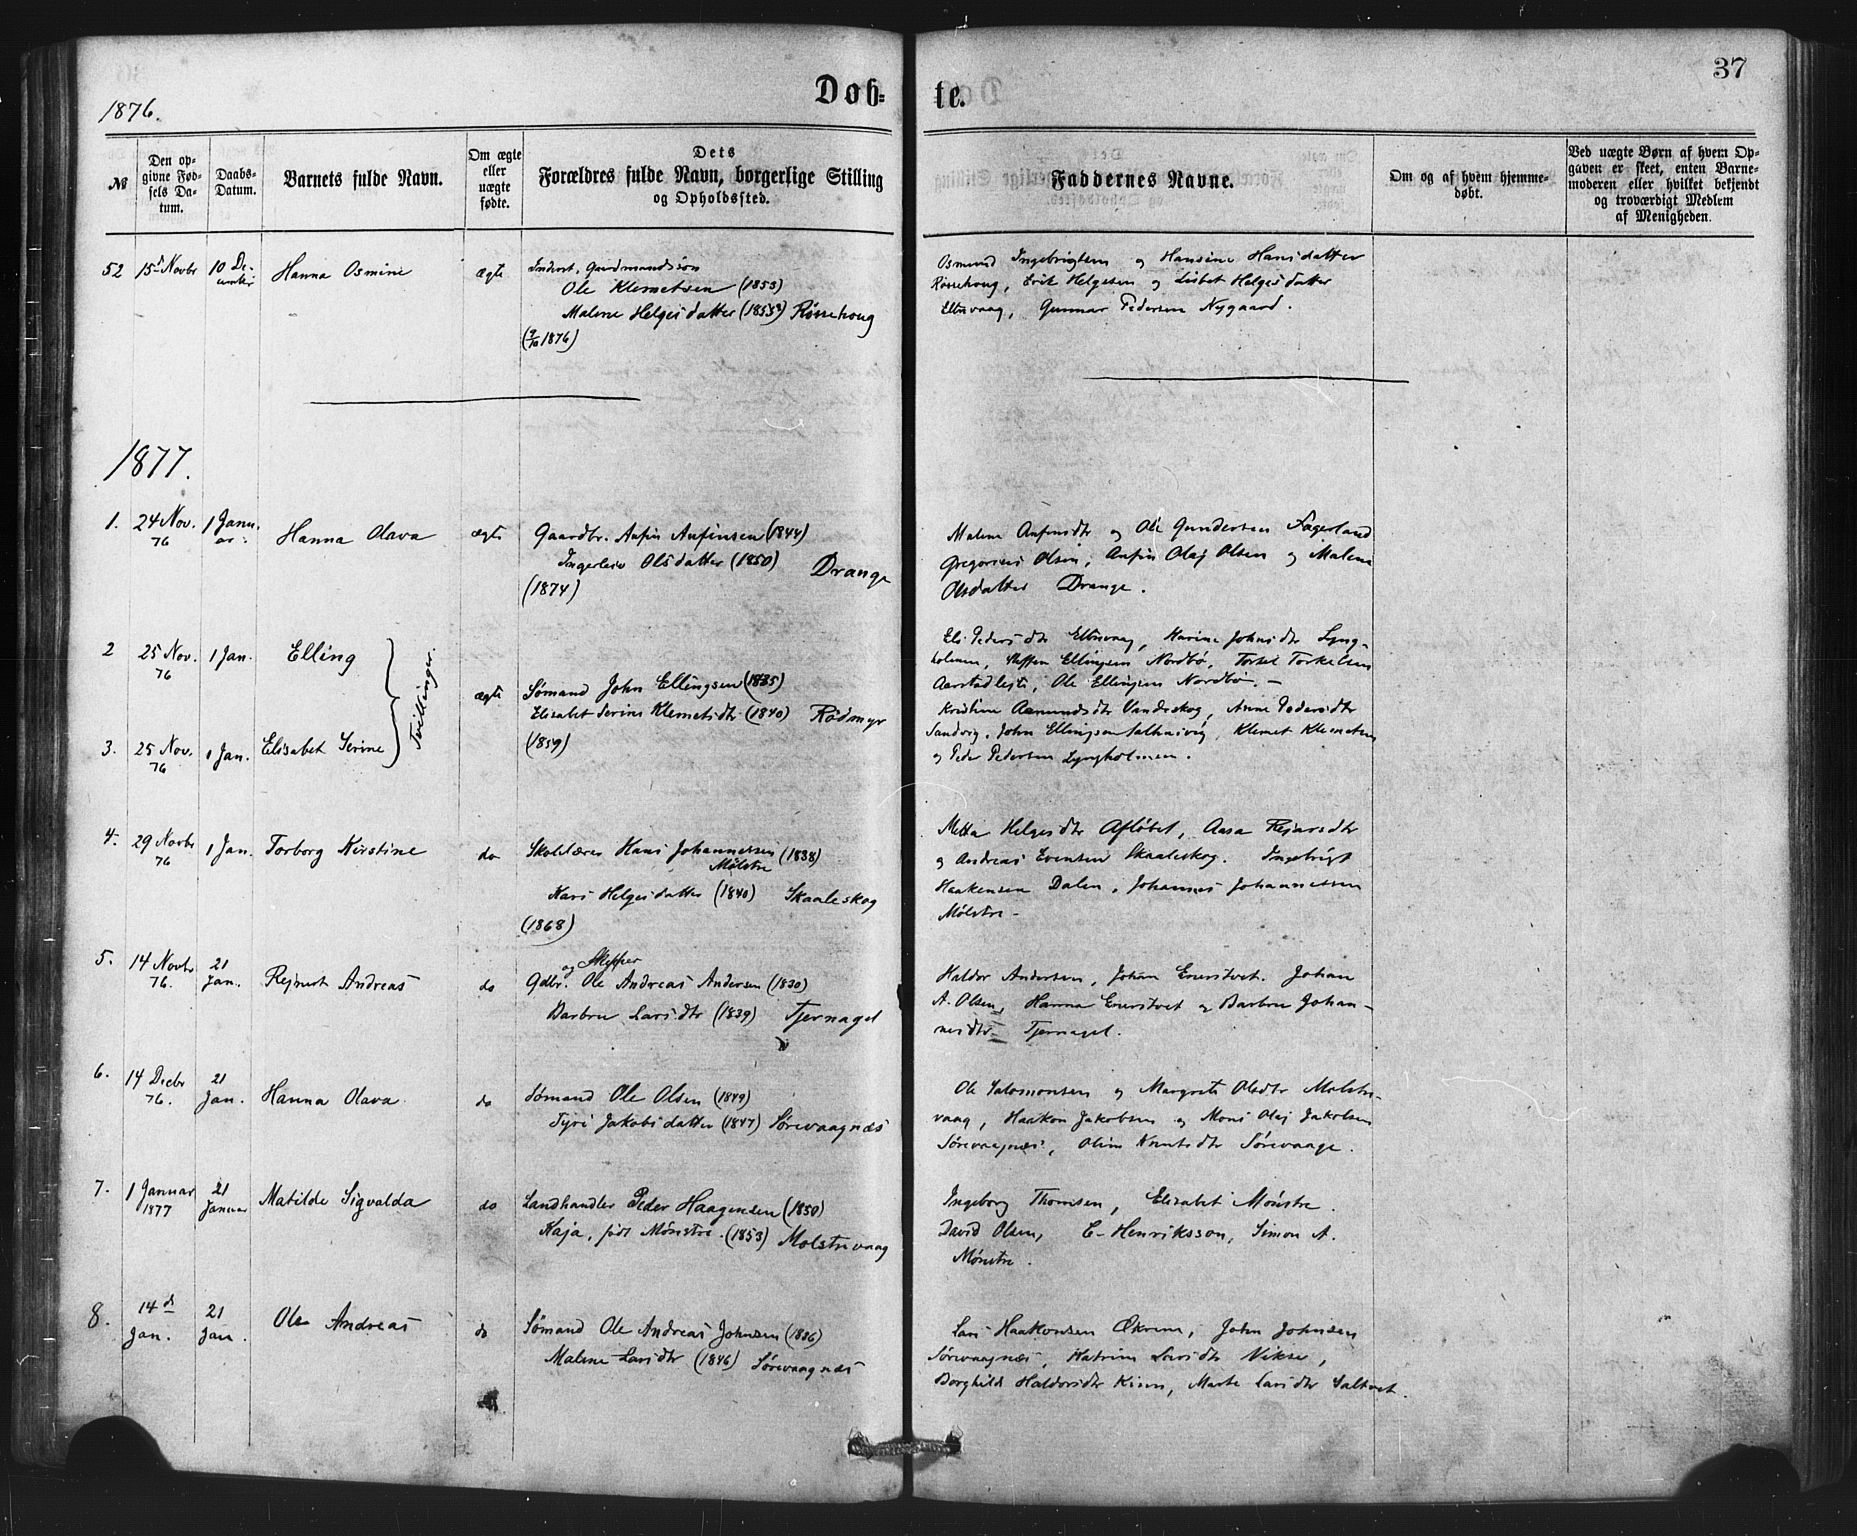 37
1876.
Dob=
te.
№
Den op=
givne Fød=
sels Da=
tum.
Daabs=
Datum.
Barnets fulde Navn.
Om ægte
eller
uægte
fødte.
Dets
Forældres fulde Navn, borgerlige Stilling
og Opholdssted.
Faddernes Navne.
Om og af hvem hjemme=
døbt.
Ved uægte Børn af hvem Op=
gaven er skeet, enten Barne=
moderen eller hvilket bekjendt
og troværdigt Medlem
af Menigheden.
52
15d Novbr
10 De-
cember
Hanna Osmine
ægte
Inderst,
Ole Klemetsen (1853)
Malene Helgesdatter Røssehoug
(9/10 1876)
Osmund Ingebrigtsen og Hansine Hansdatter
Røssehoug, Erik Helgesen og Lisbet Helgesdatter
Ebnevaag, Gunnar Pedersen Nygaard.
1877.
1.
24 Nov.
76
1 Janu-
ar.
Hanna Olava
ægte
Gaardbr. Anfin Anfinsen (1844)
Olsdatter (1850) Drange
(1874)
Malene Anfinsdtr og Ole Gundersen Fagerland
Gregorius Olsen, Anfin Olaj Olsen og Malene
Olsdatter Drange.
2
25 Nov.
76
1 Jan.
Elling
Tvillinger.
ægte
Sømand John Ellingsen (1835)
Elisabet Serine Klemetsdtr. (1840) Rødmyr
(1859)
3.
25 Nov.
76
1 Jan.
Elisabet Serine
Els Pedersdtr Ebnevaag, Karine Johnsdtr Lyng-
holmen, Steffen Ellingsen Nordbø, Torkelsen
Ole Ellingsen Nordbø. –
Kristine Aamundsdtr Vandeskog, Anne Pedersdtr
Sandvig, John Ellingsen Klemet Klemetsen
og Peder Pedersen Lyngholmen.
4.
29 Novbr
76
1 Jan.
Torborg Kirstine
do
Skolelærer Hans Johannessen (1838)
Mølstre
Kari Helgesdatter (1840) Skaaleskog
(1868)
Metta Helgesdtr Afløbet, Aasa Rejarsdtr
og Andreas Evensen Skaaleskog. Ingebrigt
Haakensen Dalen, Johannes Johannessen
Mølstre –
5.
14 Novbr
76.
21
Jan.
Rejnert Andreas
do
og Skipper
Gdbr. Ole Andreas Andersen (1830)
Barbru Larsdtr (1839) Tjernagel
Haldor Andersen, Johan Enerstvet. Johan
A. Olsen, Hanna Enerstvet og Barbru Johan-
nesdtr Tjernagel.
6.
14 Decbr
76.
21
Jan.
Hanna Olava
do
Sømand Ole Olsen (1849)
Tyri Jakobsdatter (1847) Sørevaagnæs
Ole Salomonsen og Margrete Olsdtr Mølstre-
vaag, Haakon Jakobsen og Mons Olaj Jakobsen
Sørevaagnæs, Oline Knutsdtr Sørevaage.
7.
1 Januar
1877
21
Januar
Matilde Sigvalda
do
Landhandler Peder Haagensen (1850)
Kaja, født Mønstre. (1853) Molstrevaag
Ingeborg Thomsen, Elisabet Mønstre.
David Olsen, C. Henriksson, Simon A.
Mønstre.
8.
14d
Jan.
21
Jan.
Ole Andreas
do
Sømand Ole Andreas Johnsen (1836)
Malene Larsdtr (1846) Sørevaagnæs
Lars Haakonsen Økrene, John Johnsen
Sørevaagnæs, Katrine Larsdtr Vikse,
Borghild Haldorsdtr Marte Larsdtr Saltvet.